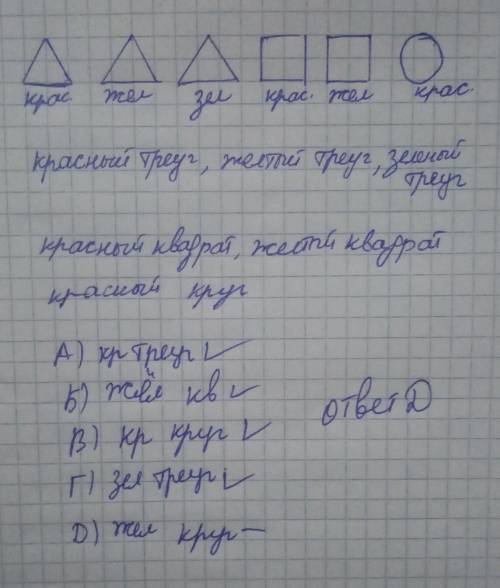 крас. жел зел крас. жел крас.
красный треуг, желтый треуг, зеленый
треуг
красный квадрат, желтый квадрат
красный круг
А) кр треуг ✓
Б) жел кв ✓
В) кр круг ✓
Г) зел треуг ✓
Д) жел круг —
ответ Д